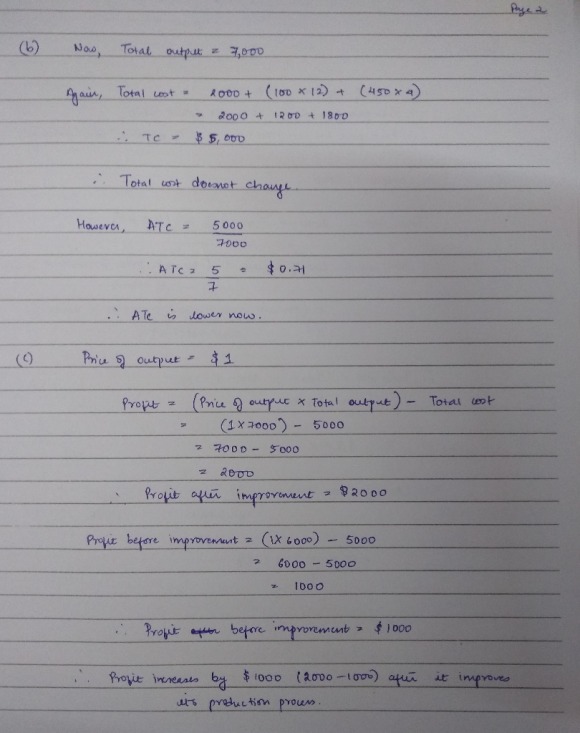 Page 2
(b) Now, Total output = 7,000
Again, Total cost = 2000 + (100 x 12) + (450 x 4)
= 2000 + 1200 + 1800
∴ TC = $5,000
∴ Total cost doesnot change.
However, ATC = 5000
7000
∴ ATC = 5 = $0.71
7
∴ ATC is lower now.
(c) Price of output = $1
Profit = (Price of output x Total output) - Total cost
= (1 x 7000) - 5000
= 7000 - 5000
= 2000
∴ Profit after improvement = $2000
Profit before improvement = (1x 6000) - 5000
= 6000 - 5000
= 1000
∴ Profit before improvement = $1000
∴ Profit increases by $1000 (2000-1000) after it improves
its production process.